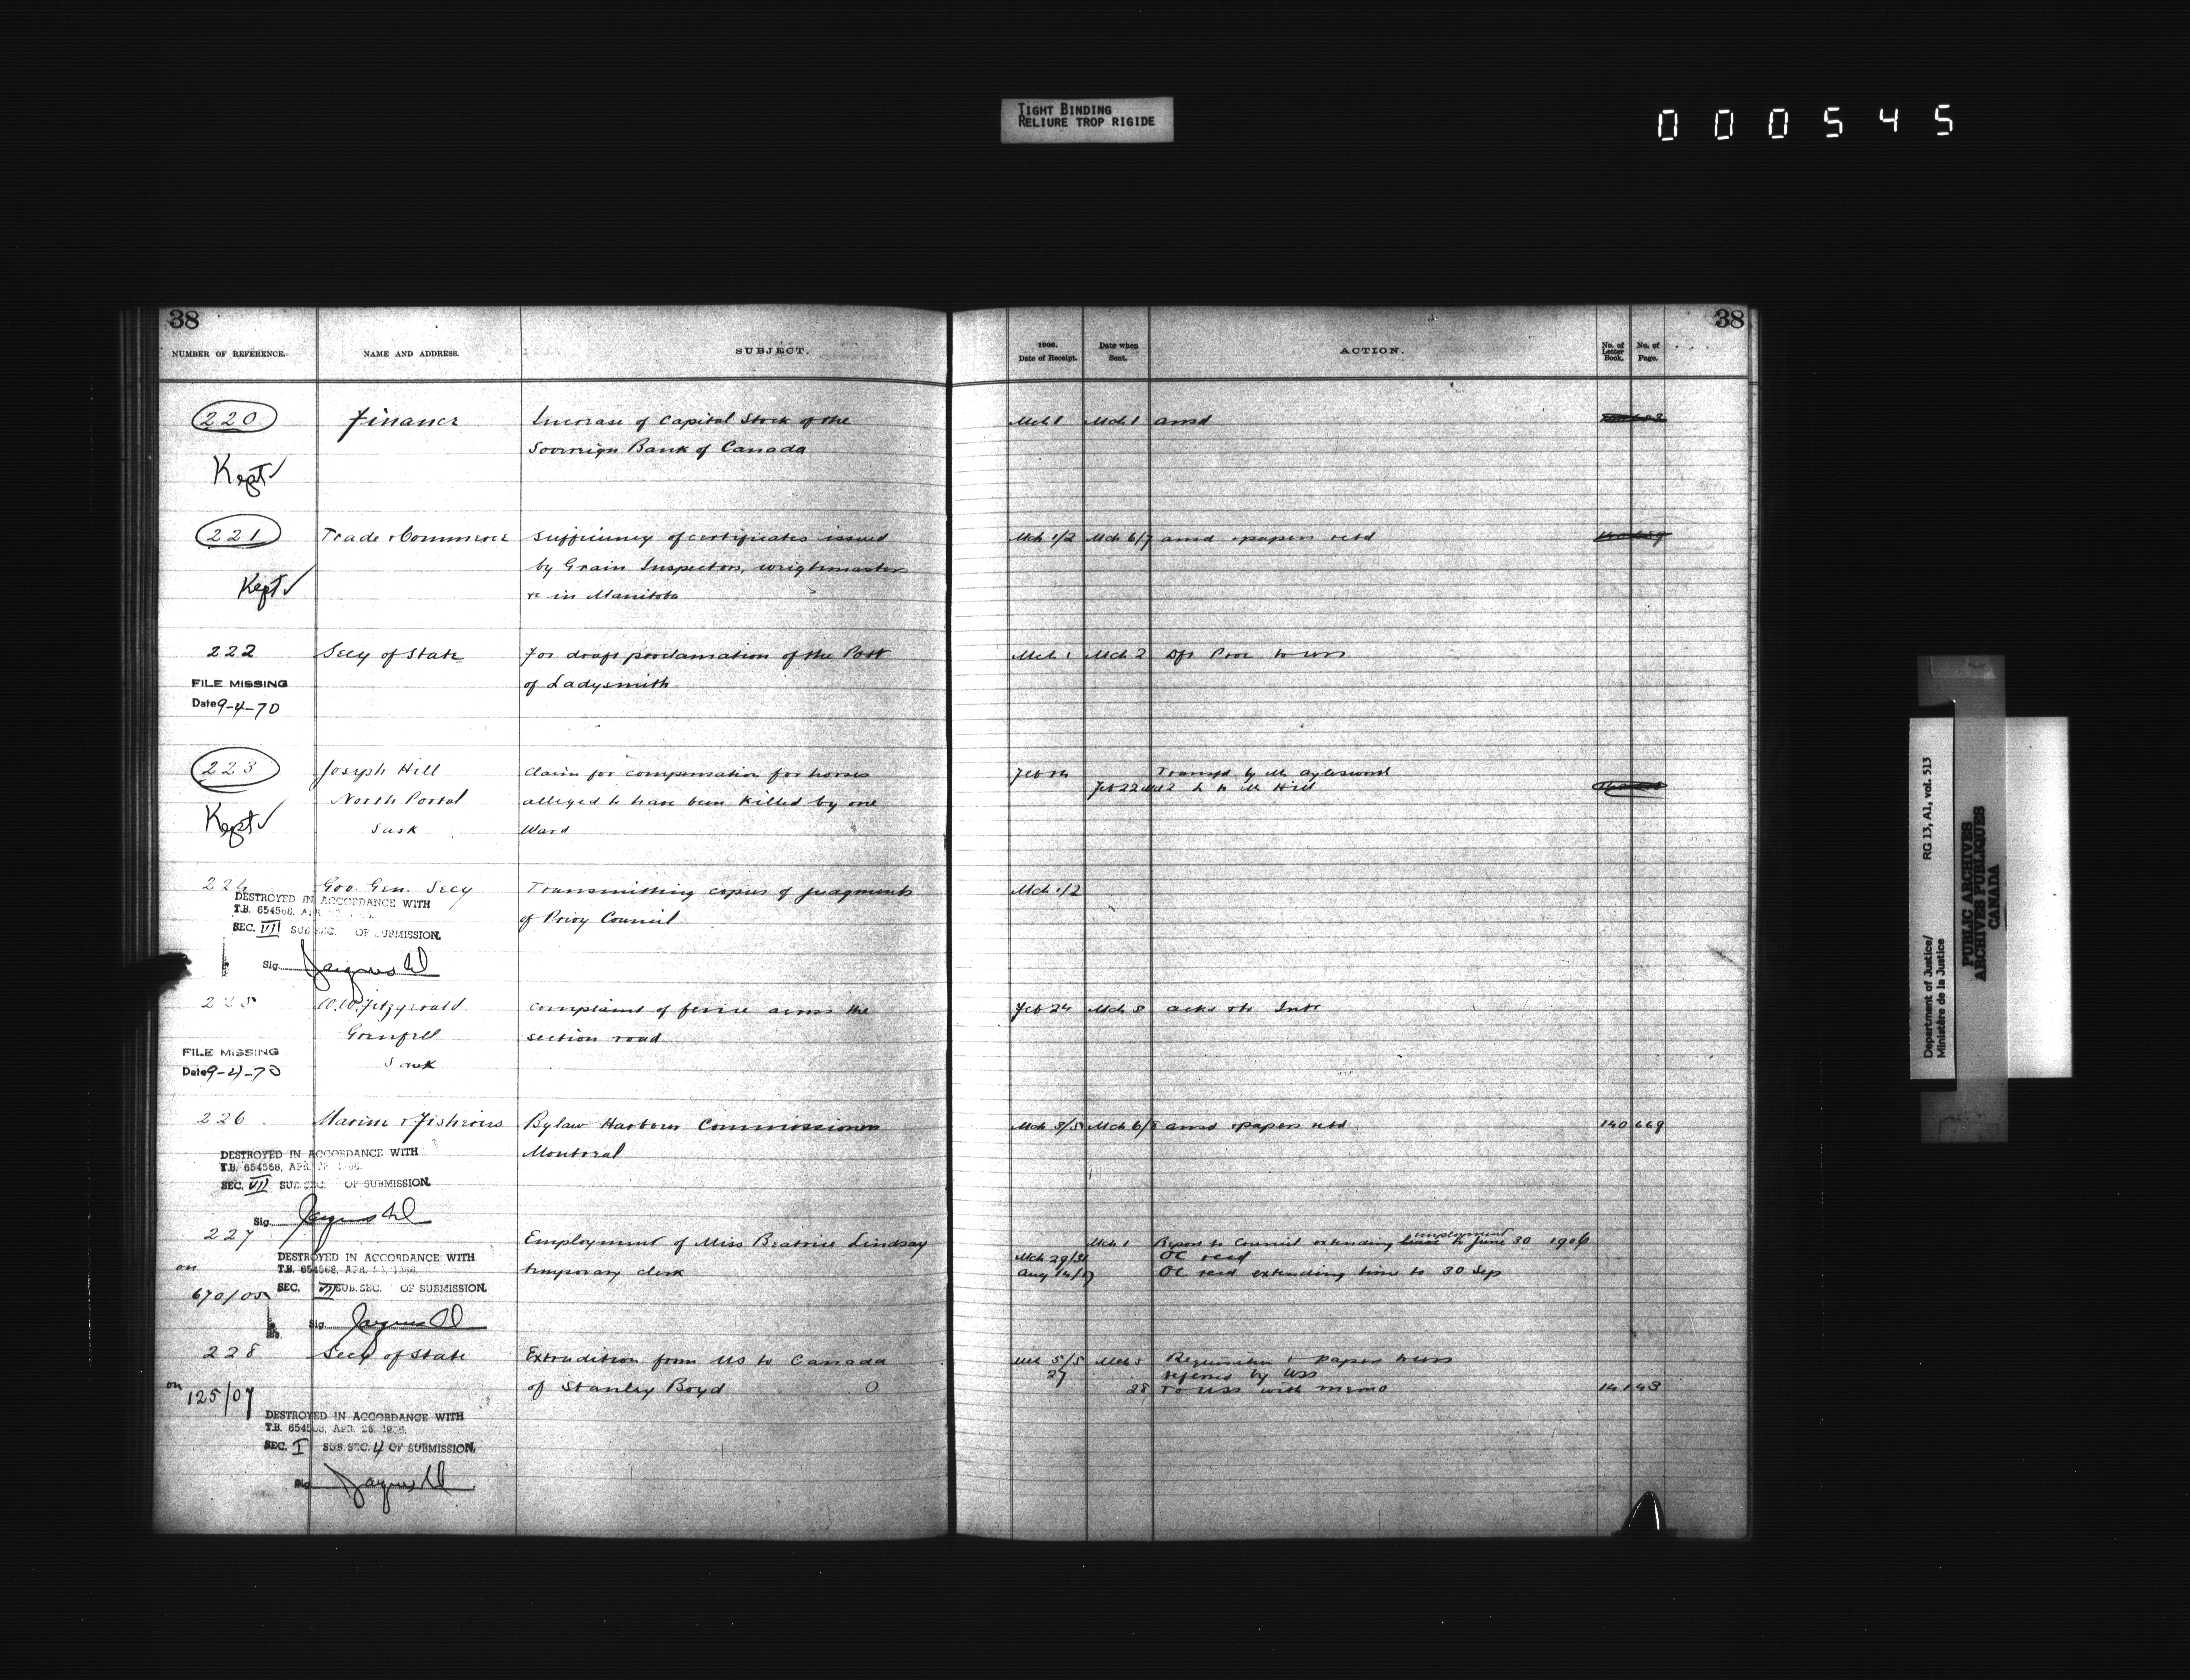 TIGHT BINDING
RELIURE TROP RIGIDE
000545
38
NUMBER OF REFERENCE.
NAME AND ADDRESS.
SUBJECT.
1906.
Date of Receipt.
Date when
Sent.
ACTION.
No. of
Letter
Book.
No. of
Page.
38
220 Finance Increase of Capital Stock of the Mch 1 Mch 1 ansd
Sovereign Bank of Canada
Kept ✓
221 Trade & Commerce Sufficiency of certificates issued Mch 1/2 Mch 6/7 ansd & papers retd
by Grain Inspectors, weighmasters
Kept ✓
&c in Manitoba
222 Secy of State For draft proclamation of the Port Mch 1 Mch 2
of Ladysmith
FILE MISSING
Date 9-4-70
223 Joseph Hill Claim for compensation for horses Transfd by Mr Aylesworth
North Portal alleged to have been killed by one Feb 22 Mch 2 Mr Hill
Kept ✓
Sask Ward
224 Gov. Gen. Secy Transmitting copies of judgments Mch 1/2
of Privy Council
DESTROYED IN ACCORDANCE WITH
T.B. 654568, APR.
SEC. VII SUB SEC. OF SUBMISSION.
Sig.
225 W.W. Fitzgerald Complaint of fence across the Feb 24 Mch 5
section road
Sask
FILE MISSING
Date 9-4-70
226 Marine & Fisheries Bylaw Harbour Commissioners Mch 3/5 Mch 6/8 ansd & papers retd 140 669
Montreal
DESTROYED IN ACCORDANCE WITH
T.B. 654568, APR. 28 1966.
SEC. VII SUB SEC. OF SUBMISSION.
Sig.
227 Employment of Miss Beatrice Lindsay Mch 1 Report to Council extending employment to June 30 1906
temporary clerk Mch 29/31 OC recd
Aug 14/17 OC recd extending time to 30 Sep
on
670/05
DESTROYED IN ACCORDANCE WITH
T.B. 654568, APR. 28, 1966.
SEC. VII SUB.SEC. OF SUBMISSION.
Sig.
228 Secy of State Extradition from US to Canada Mch 5/5 Mch 5 Requisition & papers
of Stanley Boyd 27 referred by USS
28 To USS with memo 141 43
on
125/07
DESTROYED IN ACCORDANCE WITH
T.B. 654568, APR. 28 1966.
SEC. I SUB.SEC. 4 OF SUBMISSION.
Sig.
Department of Justice/ RG 13, A1, vol. 513
Ministère de la Justice
PUBLIC ARCHIVES
ARCHIVES PUBLIQUES
CANADA